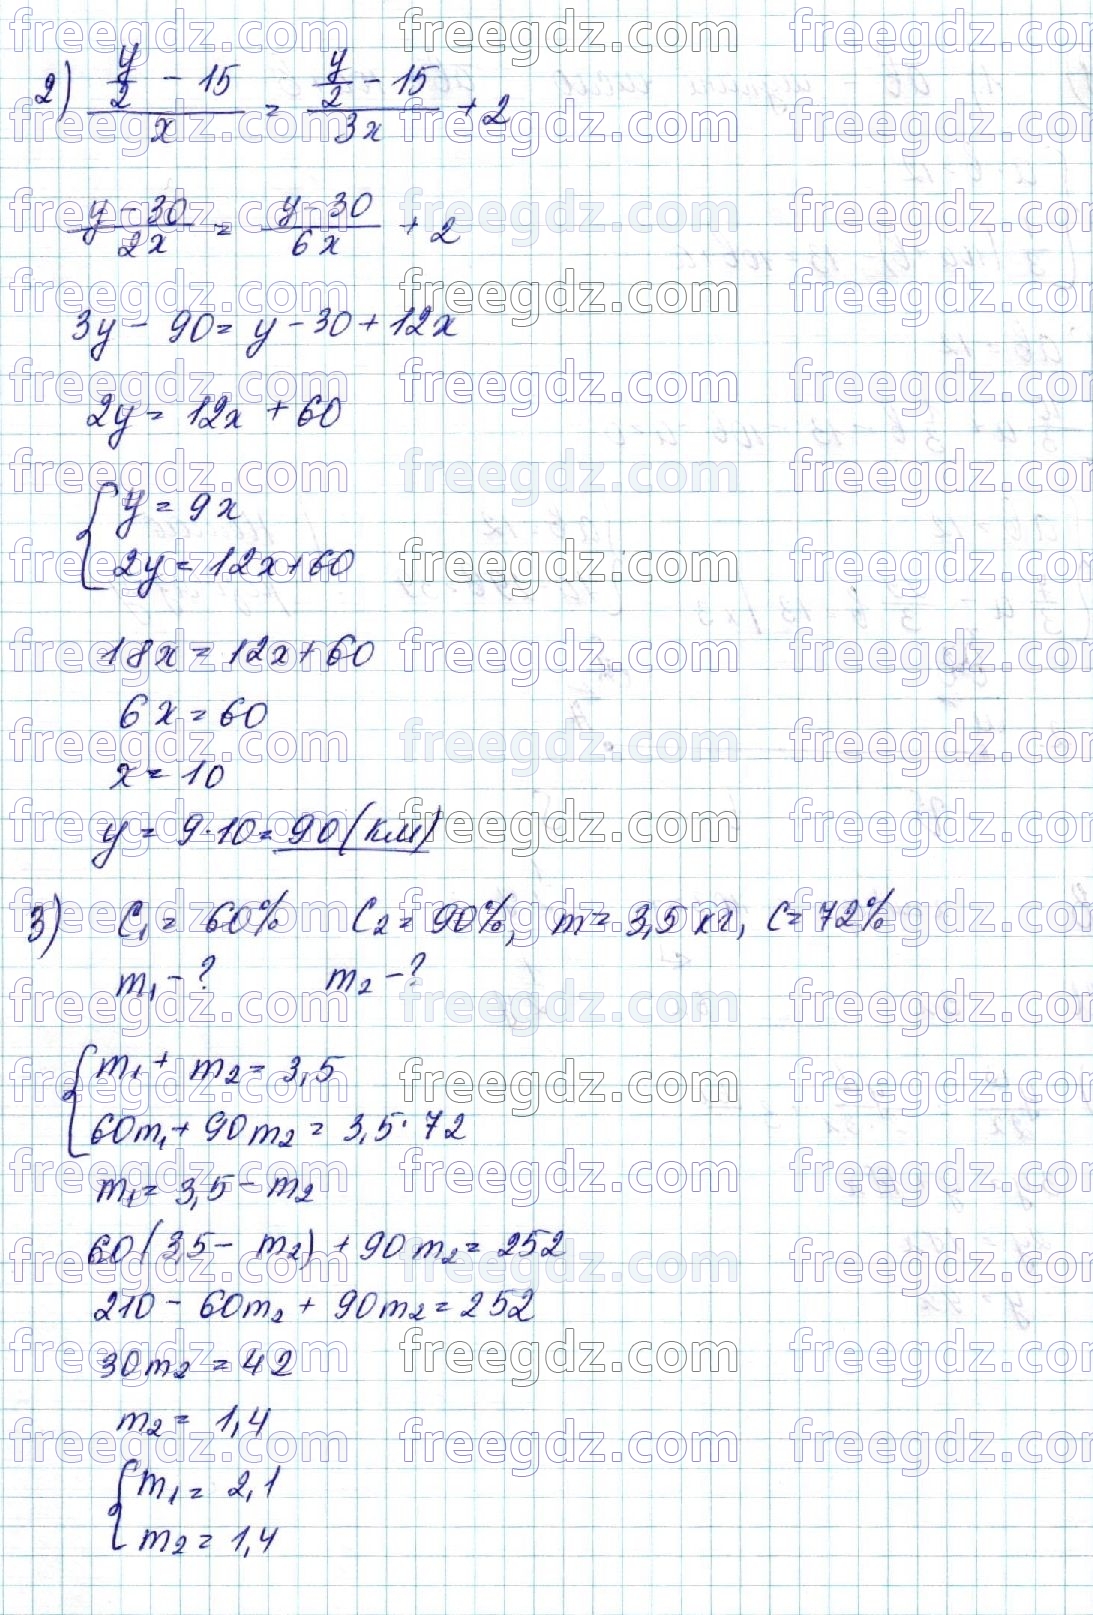 2) (y/2 - 15)/x = (y/2 - 15)/3x + 2
(y - 30)/2x = (y - 30)/6x + 2
3y - 90 = y - 30 + 12x
2y = 12x + 60
{ y = 9x
2y = 12x + 60
18x = 12x + 60
6x = 60
x = 10
y = 9·10 = 90 (км)
3) C₁ = 60% C₂ = 90%, m = 3,5 кг, C = 72%
m₁ - ? m₂ - ?
{ m₁ + m₂ = 3,5
60m₁ + 90m₂ = 3,5·72
m₁ = 3,5 - m₂
60(3,5 - m₂) + 90m₂ = 252
210 - 60m₂ + 90m₂ = 252
30m₂ = 42
m₂ = 1,4
{ m₁ = 2,1
m₂ = 1,4
freegdz.com